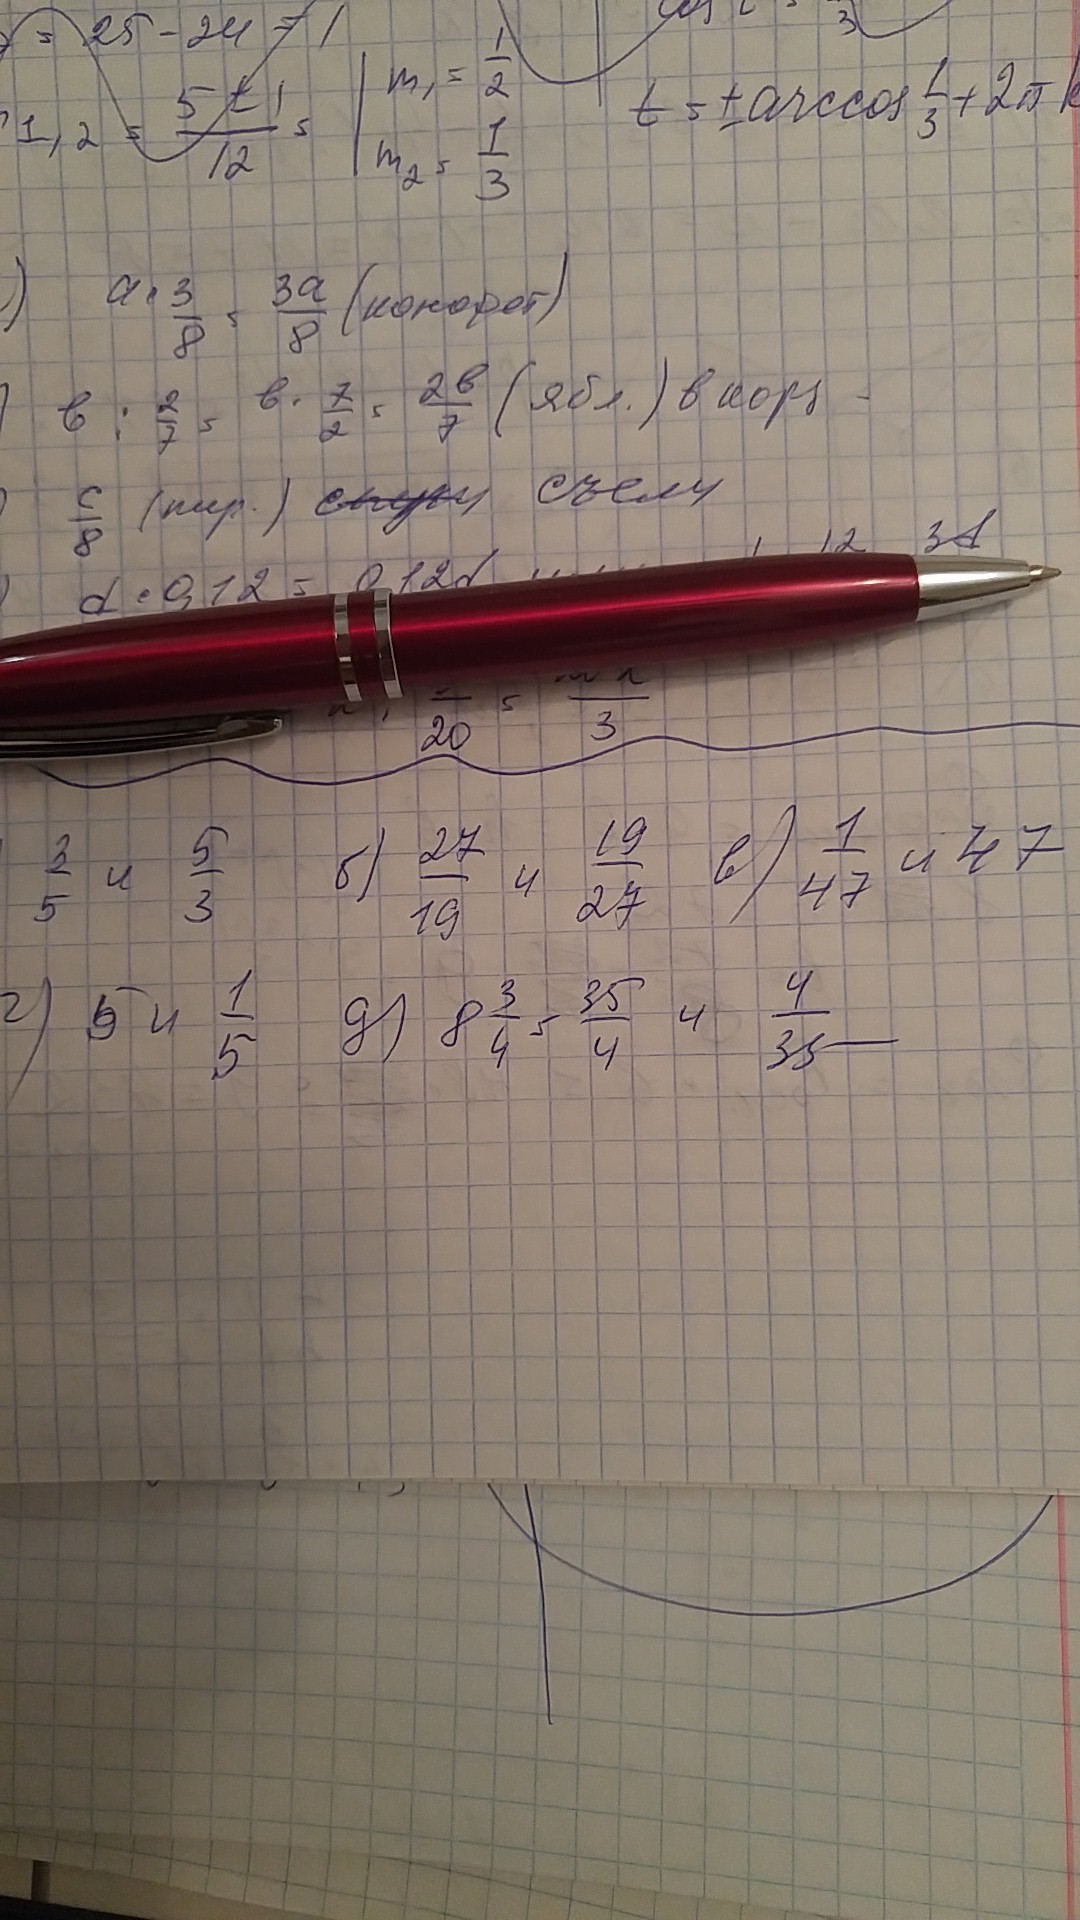 = 25 - 24 = 1
1,2 = (5 ± 1)/12 = | m₁ = 1/2
m₂ = 1/3
t = ± arccos 1/3 + 2π k
) a · 3/8 = 3a/8 (конфет)
) в : 2/7 = в · 7/2 = 2в/7 (ябл.) в корз
) c/8 (пир.) съели
) d · 0,12 = 0,12d
20 = 3
) 3/5 и 5/3 б) 27/19 и 19/27 в) 1/47 и 47
г) 5 и 1/5 д) 8 3/4 = 35/4 и 4/35